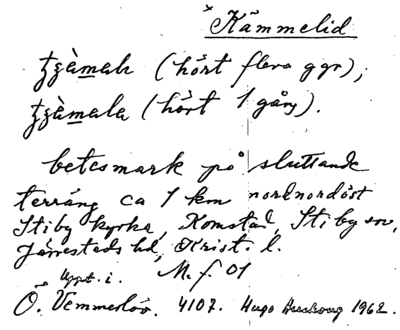 Kämmelid
tzàmah (hört flera ggr);
tzàmala (hört 1 gång).
betesmark på sluttande
terräng ca 1 km nordnordöst
Stiby kyrka, Komstad, Stiby sn,
Järrestads hd, Krist. l.
Uppt. i. M. f. 01
Ö. Vemmerlöv. 4107. Hugo 1962.